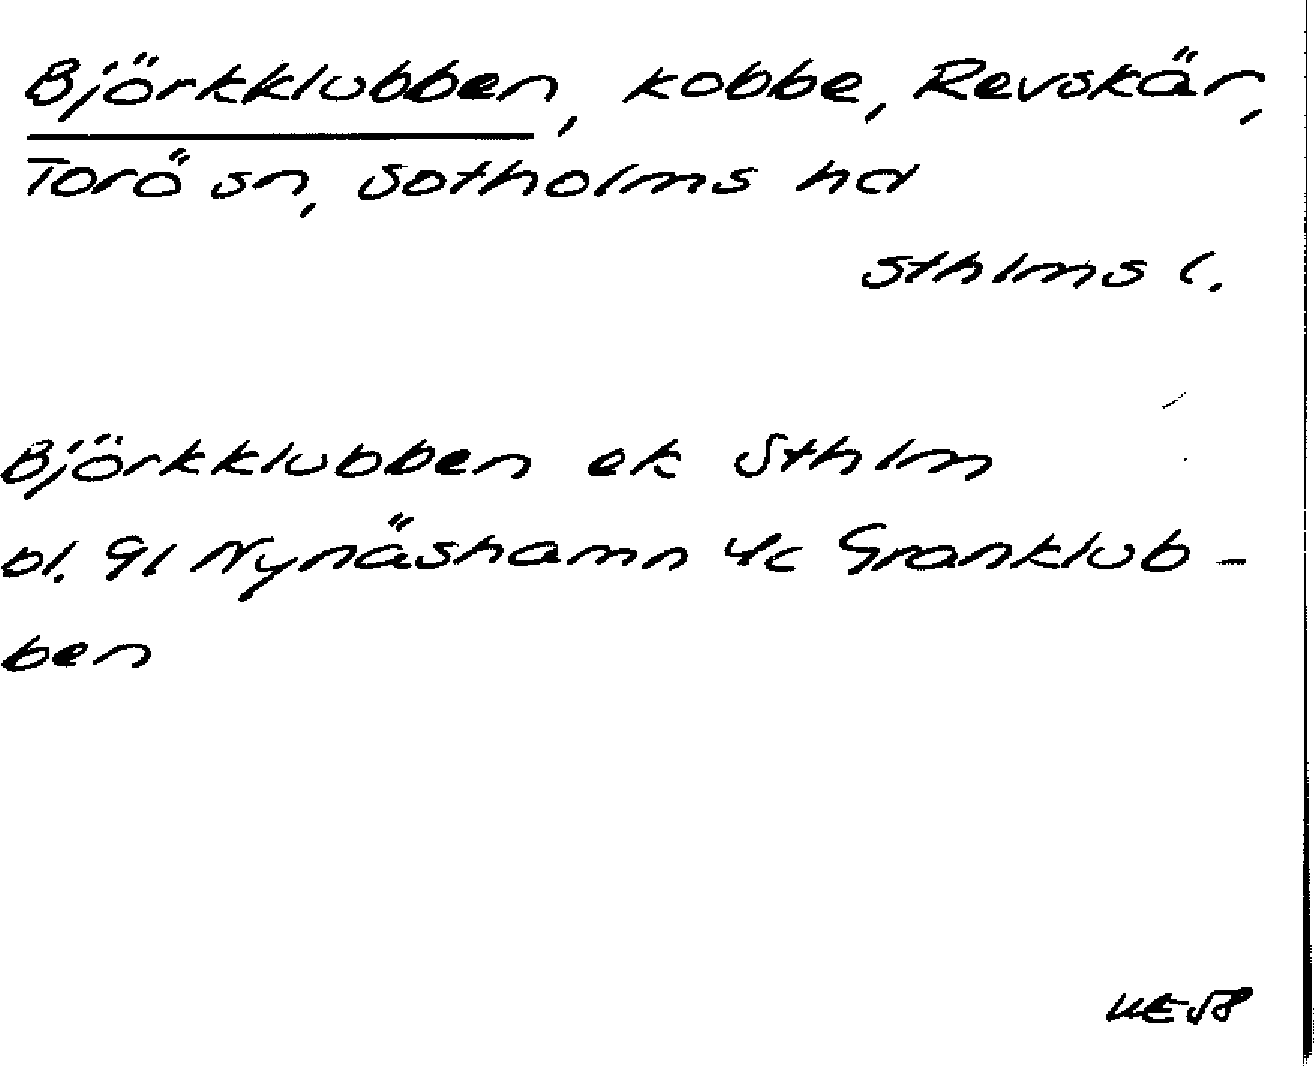 Björkklubben, kobbe, Revskär,
Torö sn, Sotholms hd
Sthlms l.
Björkklubben ek Sthlm
bl. 91 Nynäshamn 4c Granklub-
ben